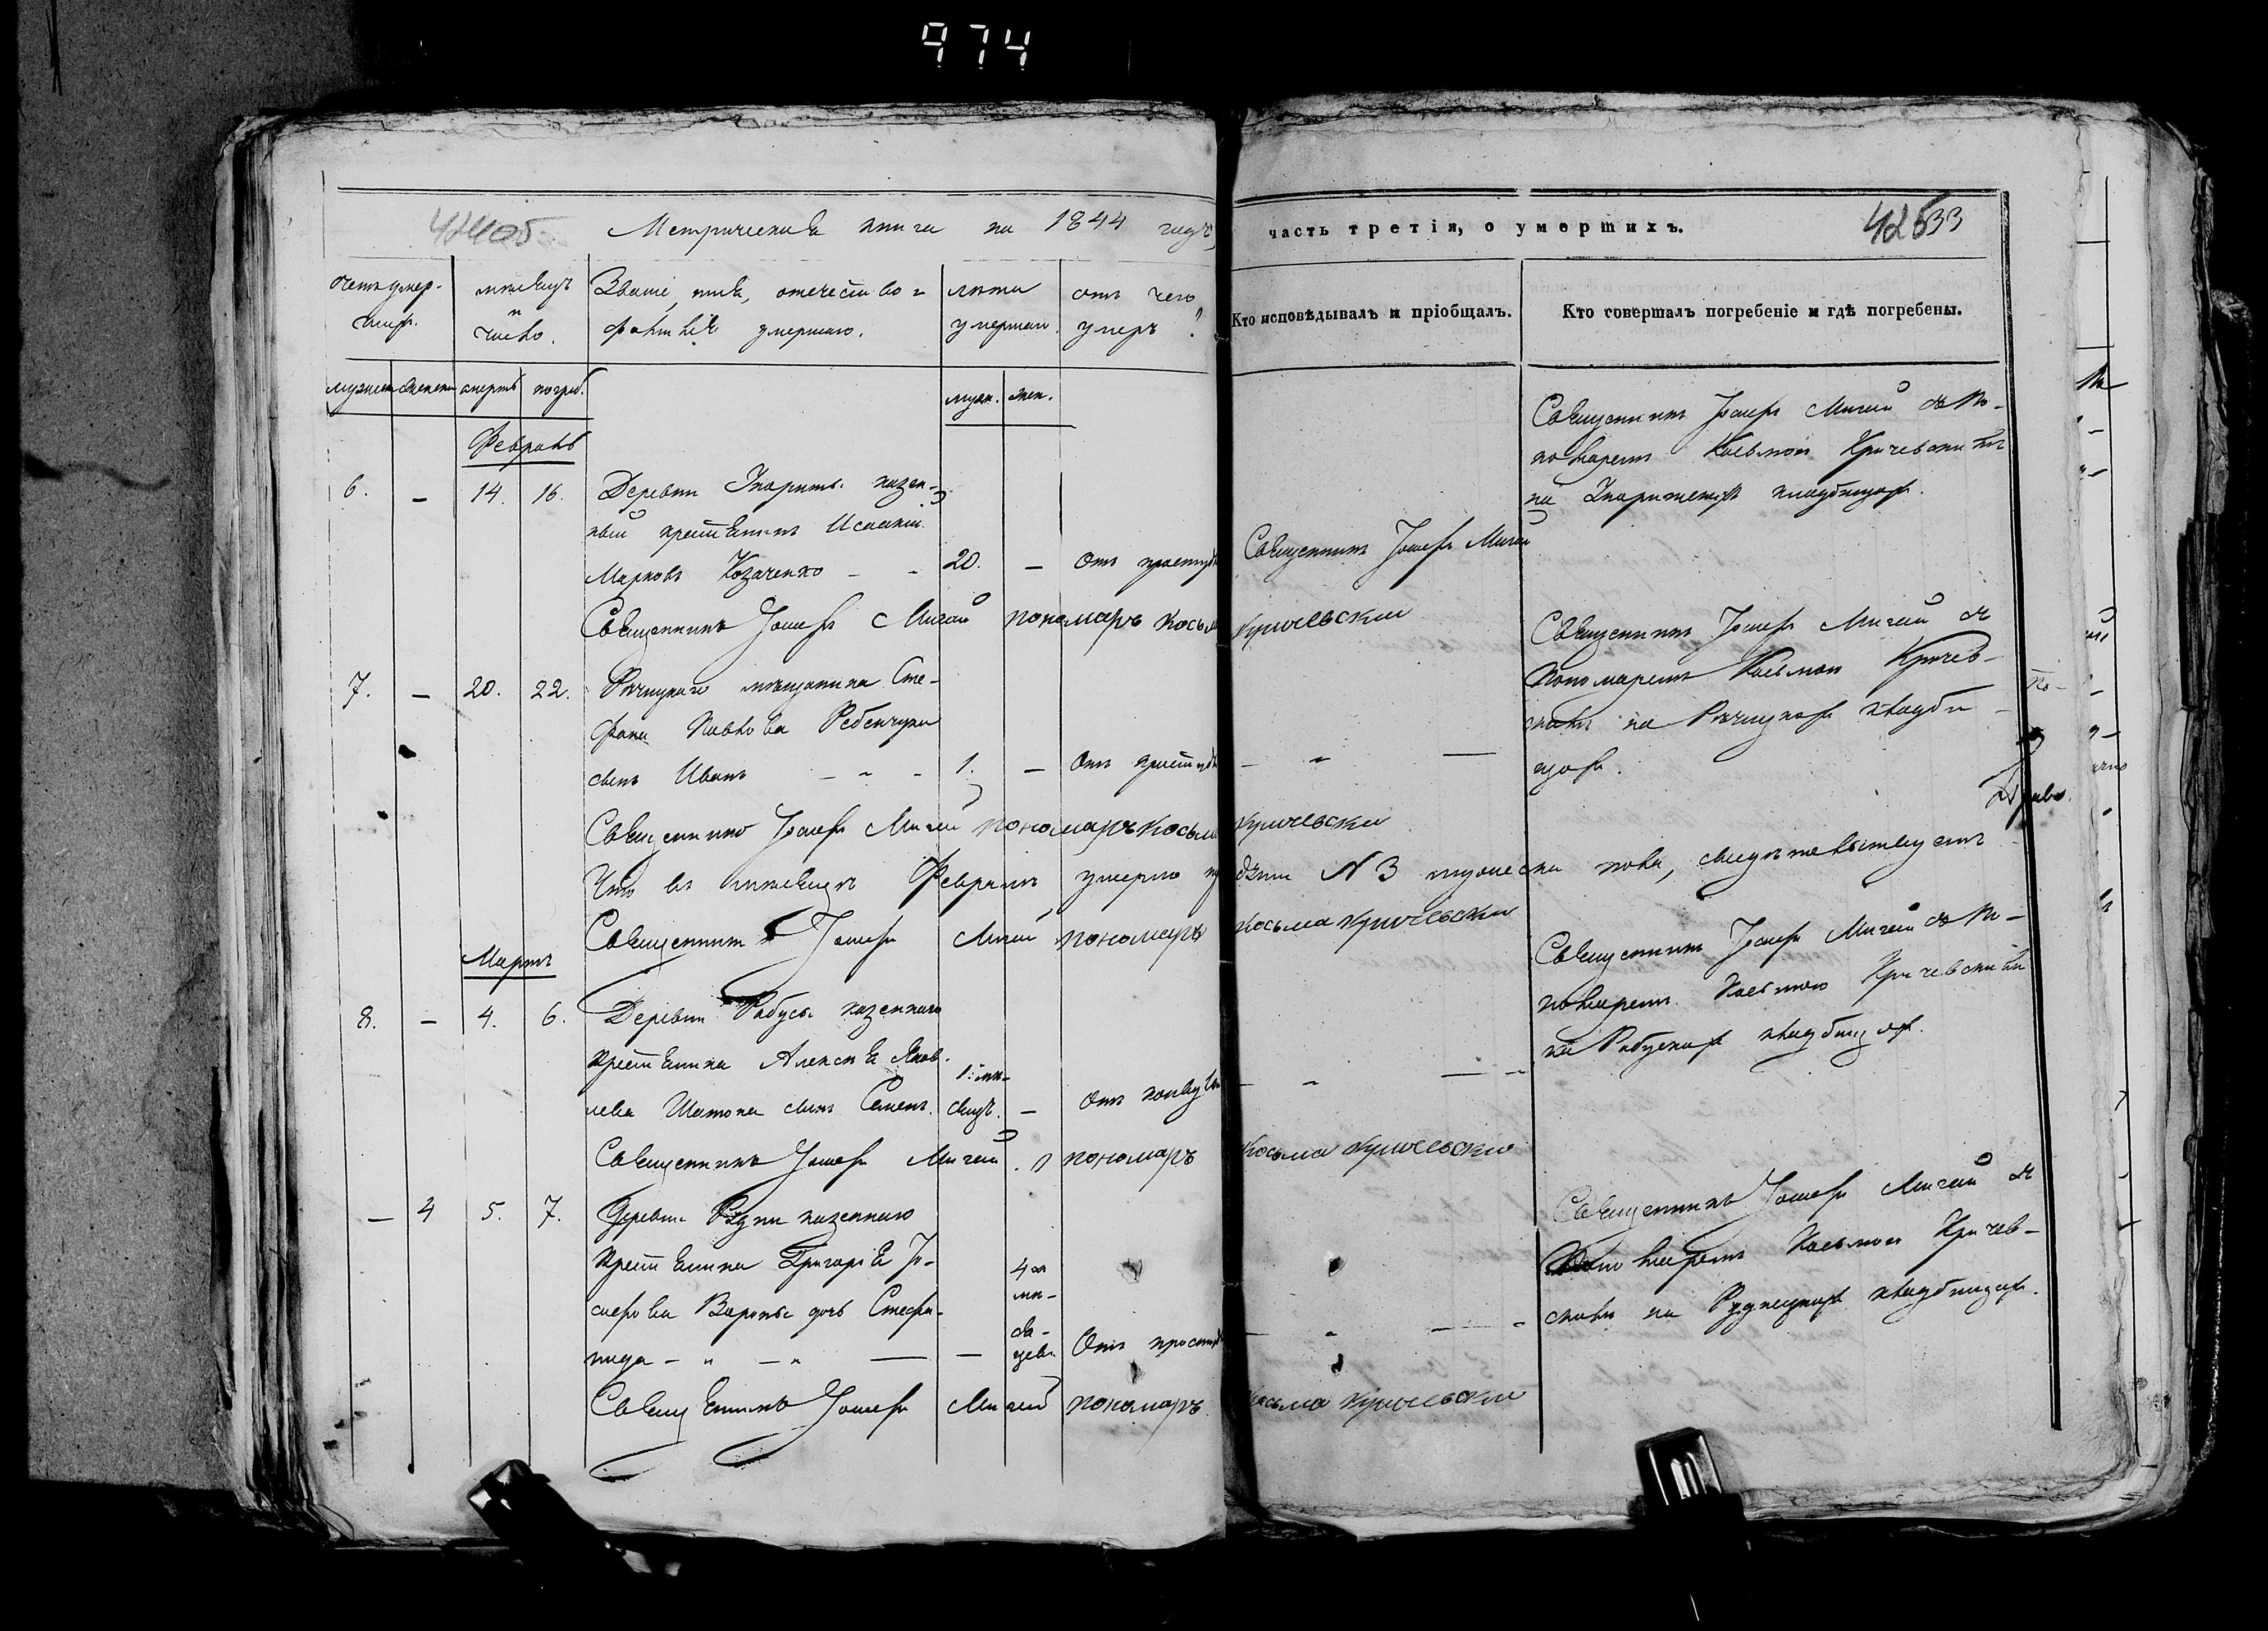 974
Метрическая книга на 1844 годъ,
часть третія, о умершихъ.
Счетъ умер-
шихъ.
мѣсяцъ
и
число.
Званіе, имя, отечество и
фамилія умершаго.
лѣта
умершаго.
отъ чего
умеръ?
Кто исповѣдывалъ и пріобщалъ.
Кто совершалъ погребеніе и гдѣ погребены.
мужеск женск смерть погреб.
муж. жен.
Февраль
6. — 14. 16. Деревни казен-
ный крестьянинъ Исаакій
Марковъ Козаченко — - 20. — Отъ простуды
Священникъ Іосифъ Мигай
Священникъ Іосифъ Мигай съ по-
номаремъ Косьмою Кричевскимъ
на кладбищѣ.
Священникъ Іосифъ Мигай пономарь Косьма Кричевскій
7. — 20. 22. Рѣчицкаго мѣщанина Сте-
фана Павлова
сынъ Иванъ — - - 1. — Отъ простуды — - —
Священникъ Іосифъ Мигай съ
пономаремъ Косьмою Кричев-
скимъ на Рѣчицкомъ кладби-
щѣ.
Священникъ Іосифъ Мигай пономарь Косьма Кричевскій
Что въ мѣсяцѣ Февралѣ умерло N 3 мужеска пола, свидѣтельствуемъ
Священникъ Іосифъ Мигай пономарь Косьма Кричевскій
Мартъ
8. — 4. 6. Деревни Робуса казеннаго
крестьянина Алексѣя Яков-
лева Шатона сынъ Семенъ. 1: мѣ-
сяцъ. — Отъ
Священникъ Іосифъ Мигай съ по-
номаремъ Косьмою Кричевскимъ
на кладбищѣ.
Священникъ Іосифъ Мигай пономарь Косьма Кричевскій
— 4 5. 7. Деревни Рудни казеннаго
крестьянина Григорія Іо-
сифова Вороны дочь Стефа-
нида - " - " — — 4 мѣ-
ся-
цевъ Отъ простуды — - — -
Священникъ Іосифъ Мигай съ
пономаремъ Косьмою Кричев-
скимъ на Руднецкомъ кладбищѣ.
Священникъ Іосифъ Мигай пономарь Косьма Кричевскій